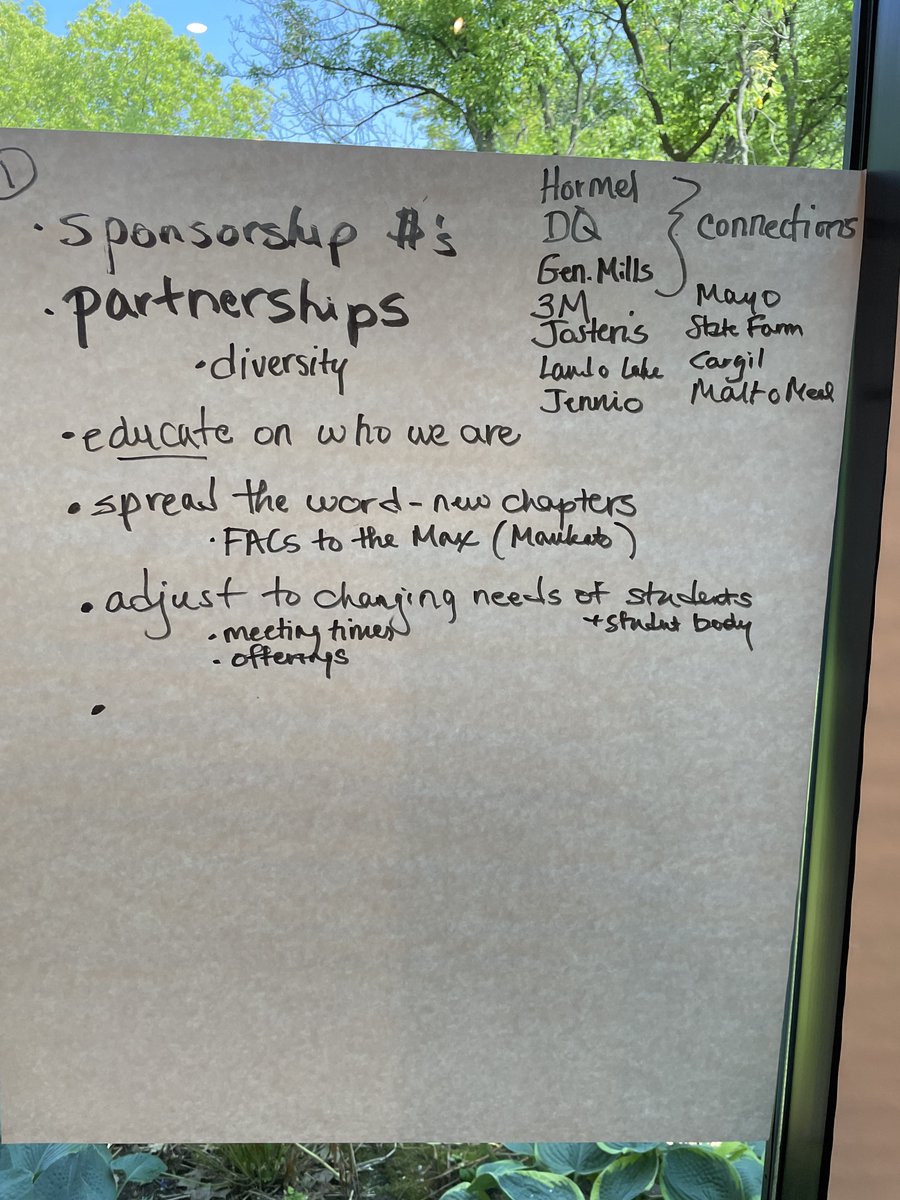 1
• sponsorship $#'s
• partnerships
• diversity
• educate on who we are
• spread the word - new chapters
• FACS to the Max (Mankato)
• adjust to changing needs of students
+ student body
• meeting times
• offerings
•
Hormel
DQ
Gen. Mills
} connections
3M
Jostens
Land o Lake
Jennio
Mayo
State Farm
Cargil
Malt o Meal